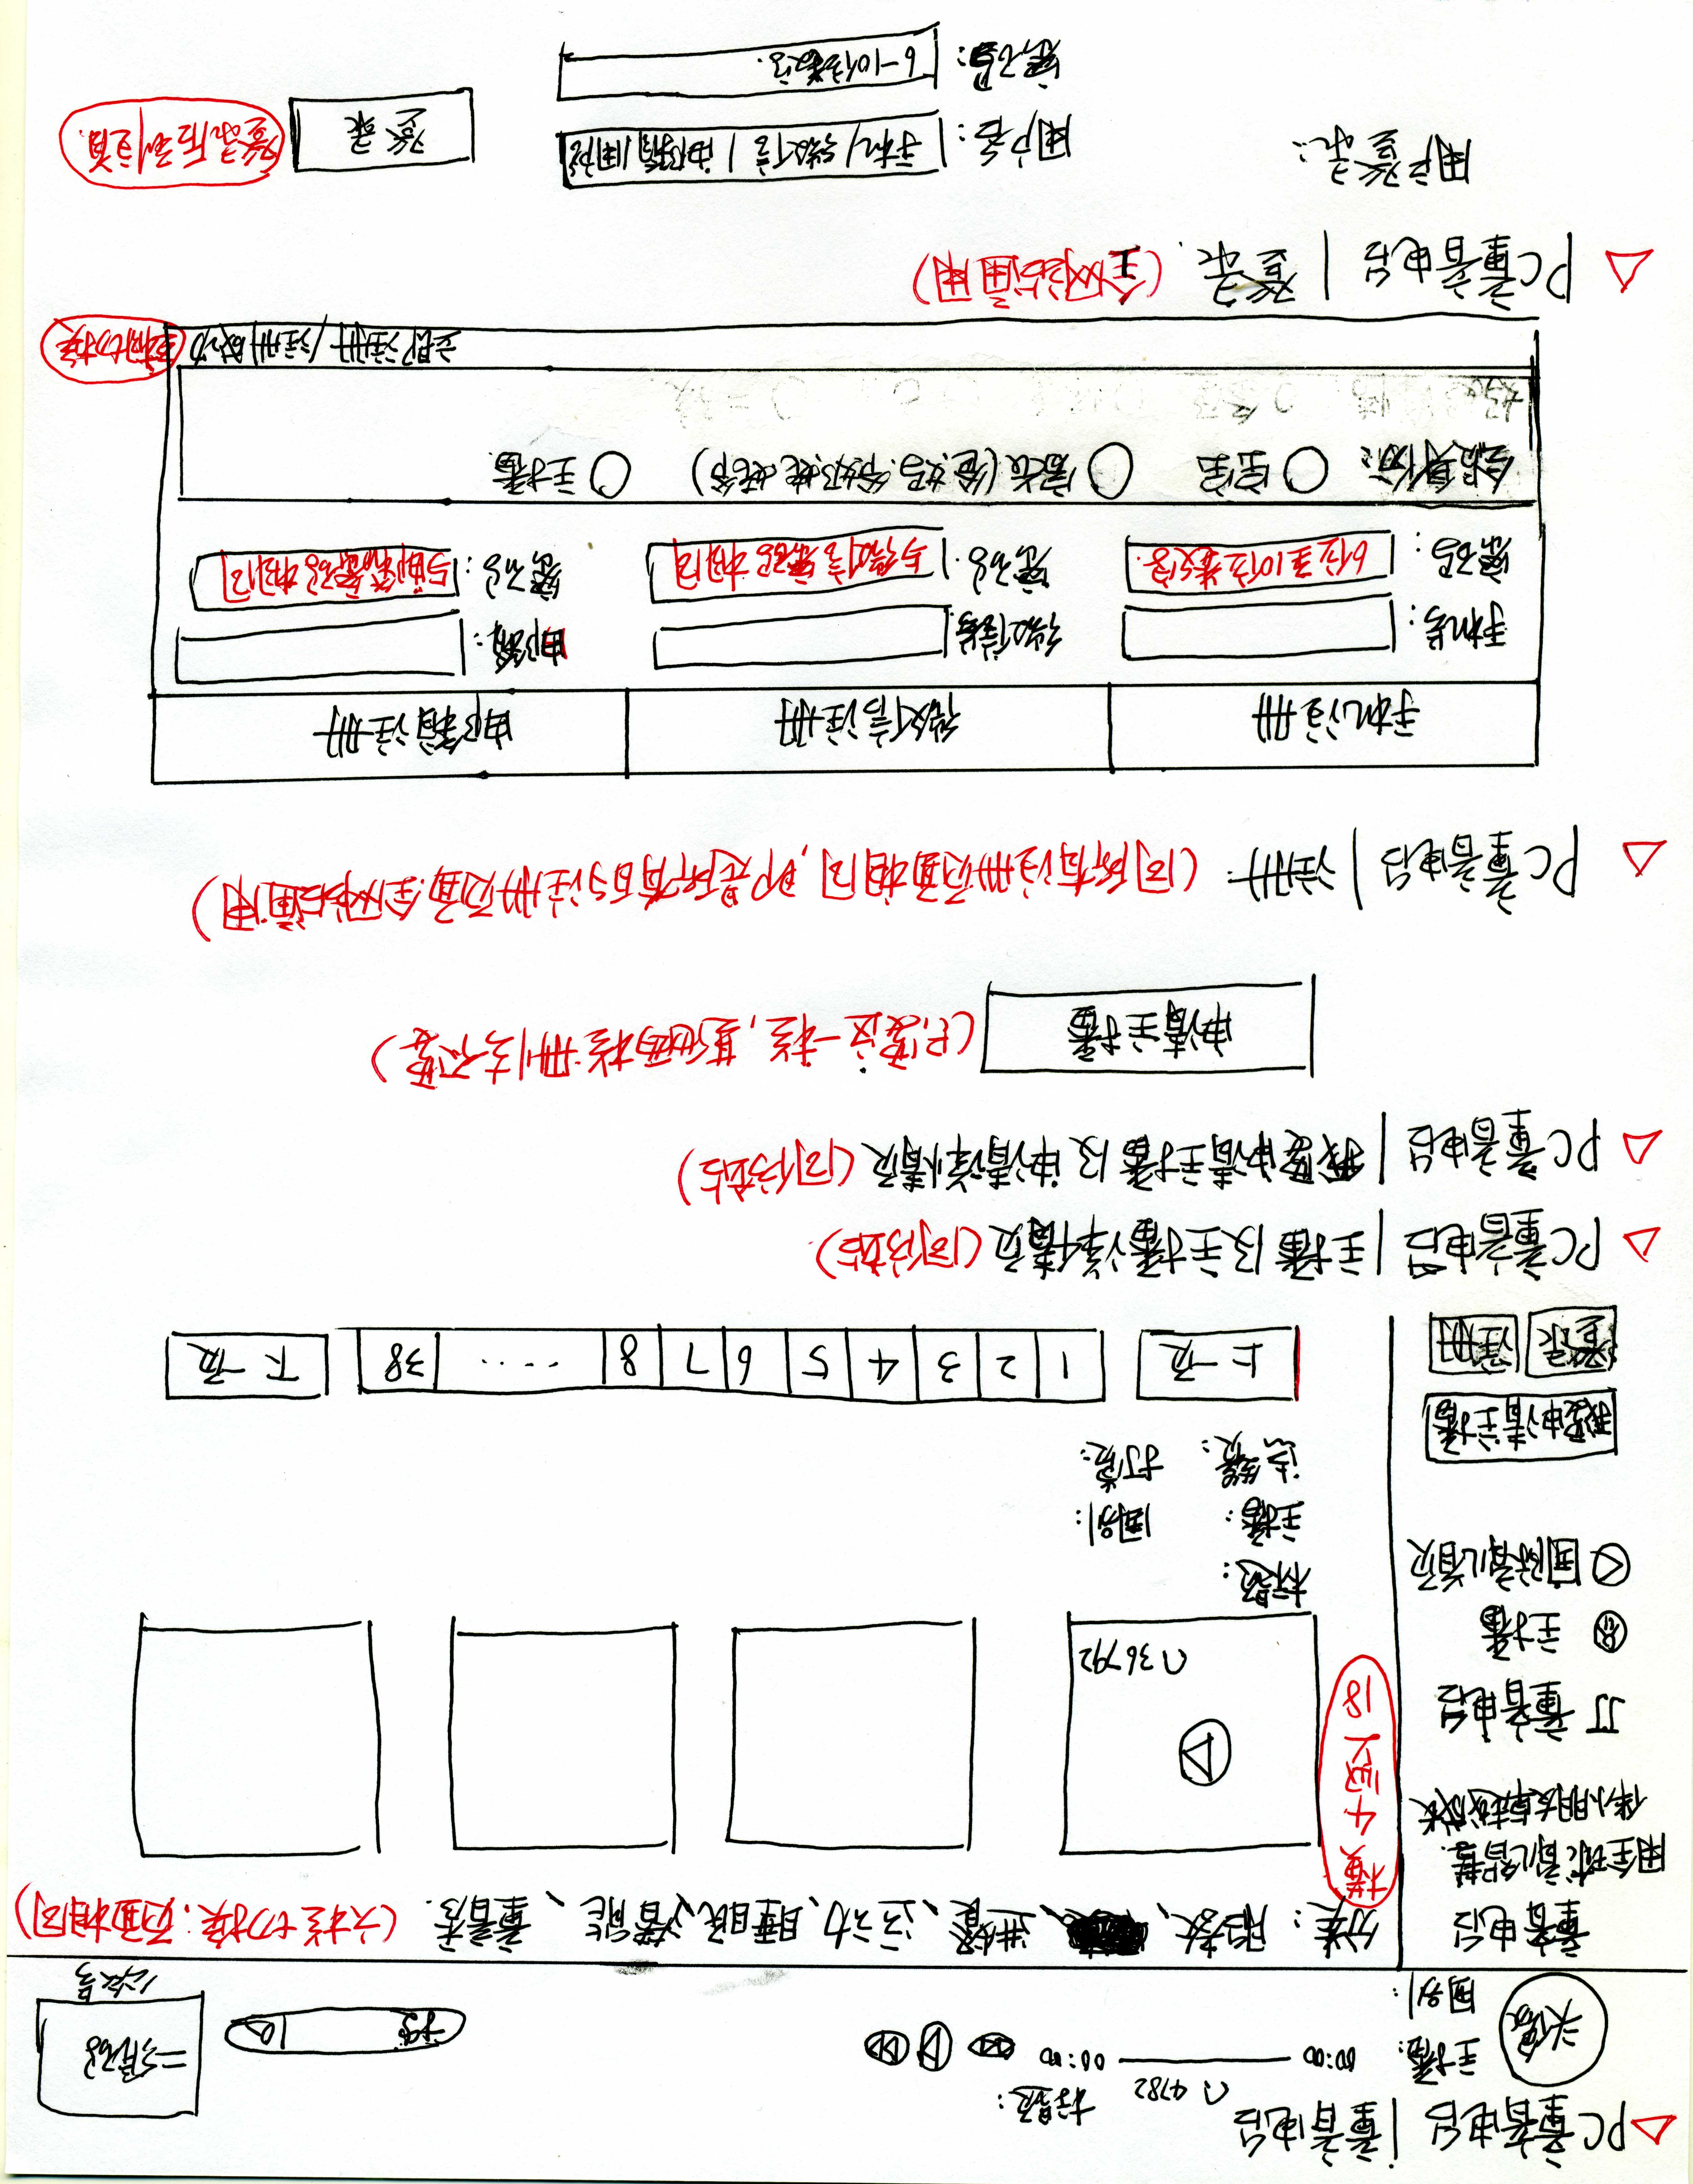 △PC童音电台|童音电台
4782 标题:
头像 主播: 00:00 00:00
国别:
搜
二维码
公众号
童音电台
用全球育儿智慧
伴小朋友卓越成长
童音电台
主播
国际育儿首页
我要申请主播
登录 注册
分类: 胎教、 、进餐、运动、睡眠、潜能、童音秀. (六栏切换:页面相同)
横4竖18
36792
标题:
主播: 国别:
点赞: 打赏:
上一页 1 2 3 4 5 6 7 8 ···· 38 下一页
△ PC童音电台|主播及主播详情页(同仿站).
△ PC童音电台|我要申请主播及申请详情页(同仿站)
申请主播 (只要这一栏,其他两栏删去不要)
△ PC童音电台|注册 (同所有注册页面相同,即是所有的注册页面全网站通用)
手机注册 微信注册 邮箱注册
手机号: 微信号: 邮箱:
密码: 6位至10位数字. 密码: 与微信密码相同 密码: 与邮箱密码相同
会员身份: ○宝宝 ○家长(爸、妈、爷奶、姥、姥爷) ○主播.
立即注册/注册成功 互相切换
△ PC童音电台|登录. (全网站通用)
用户登录: 用户名: 手机/微信/邮箱/用户名 登录 登录后到主首.
密码: 6-10位数字.